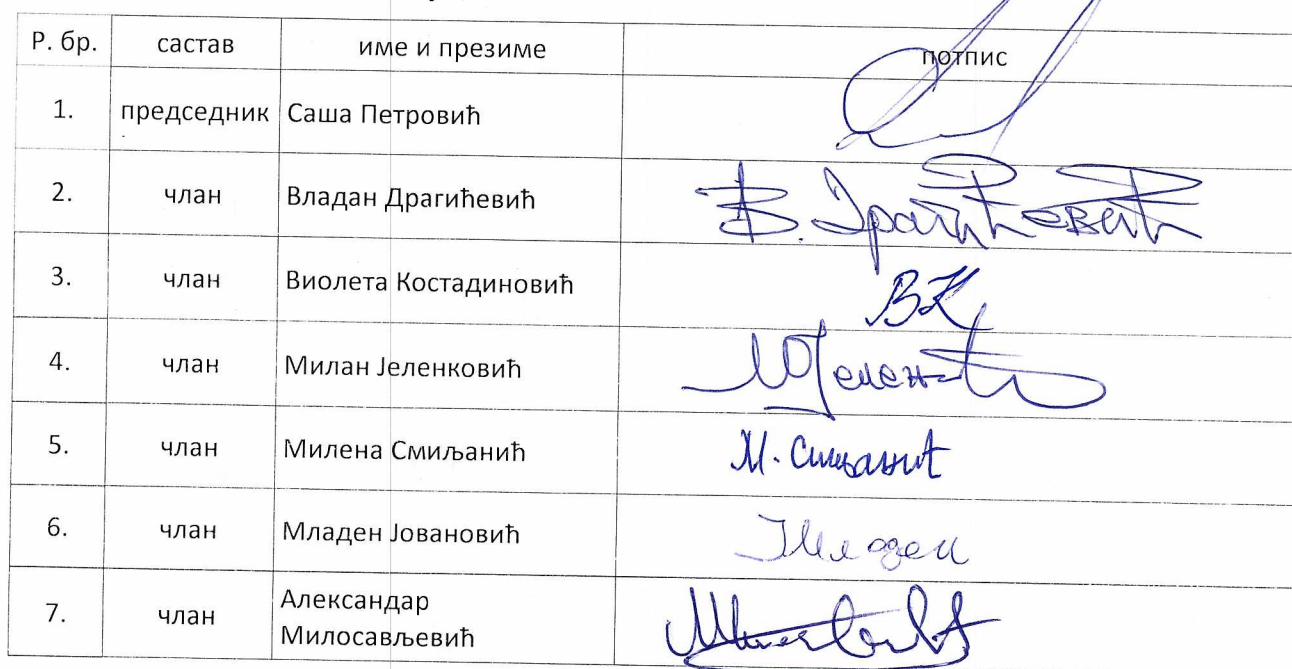 Р. бр. састав име и презиме потпис
1. председник Саша Петровић
2. члан Владан Драгићевић В. Драгићевић
3. члан Виолета Костадиновић ВК
4. члан Милан Јеленковић
5. члан Милена Смиљанић М. Смиљанић
6. члан Младен Јовановић
7. члан Александар
Милосављевић